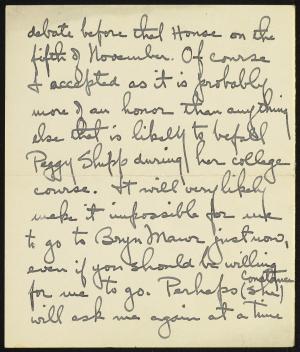 debate before that House on the
fifth of November. Of course
I accepted as it is probably
more of an honor than anything
else that is likely to befall
Peggy Shipp during her college
course. It will very likely
make it impossible for me
to go to Bryn Mawr just now,
even if you should be willing
for me to go. Perhaps (she)
Constance
will ask me again at a time